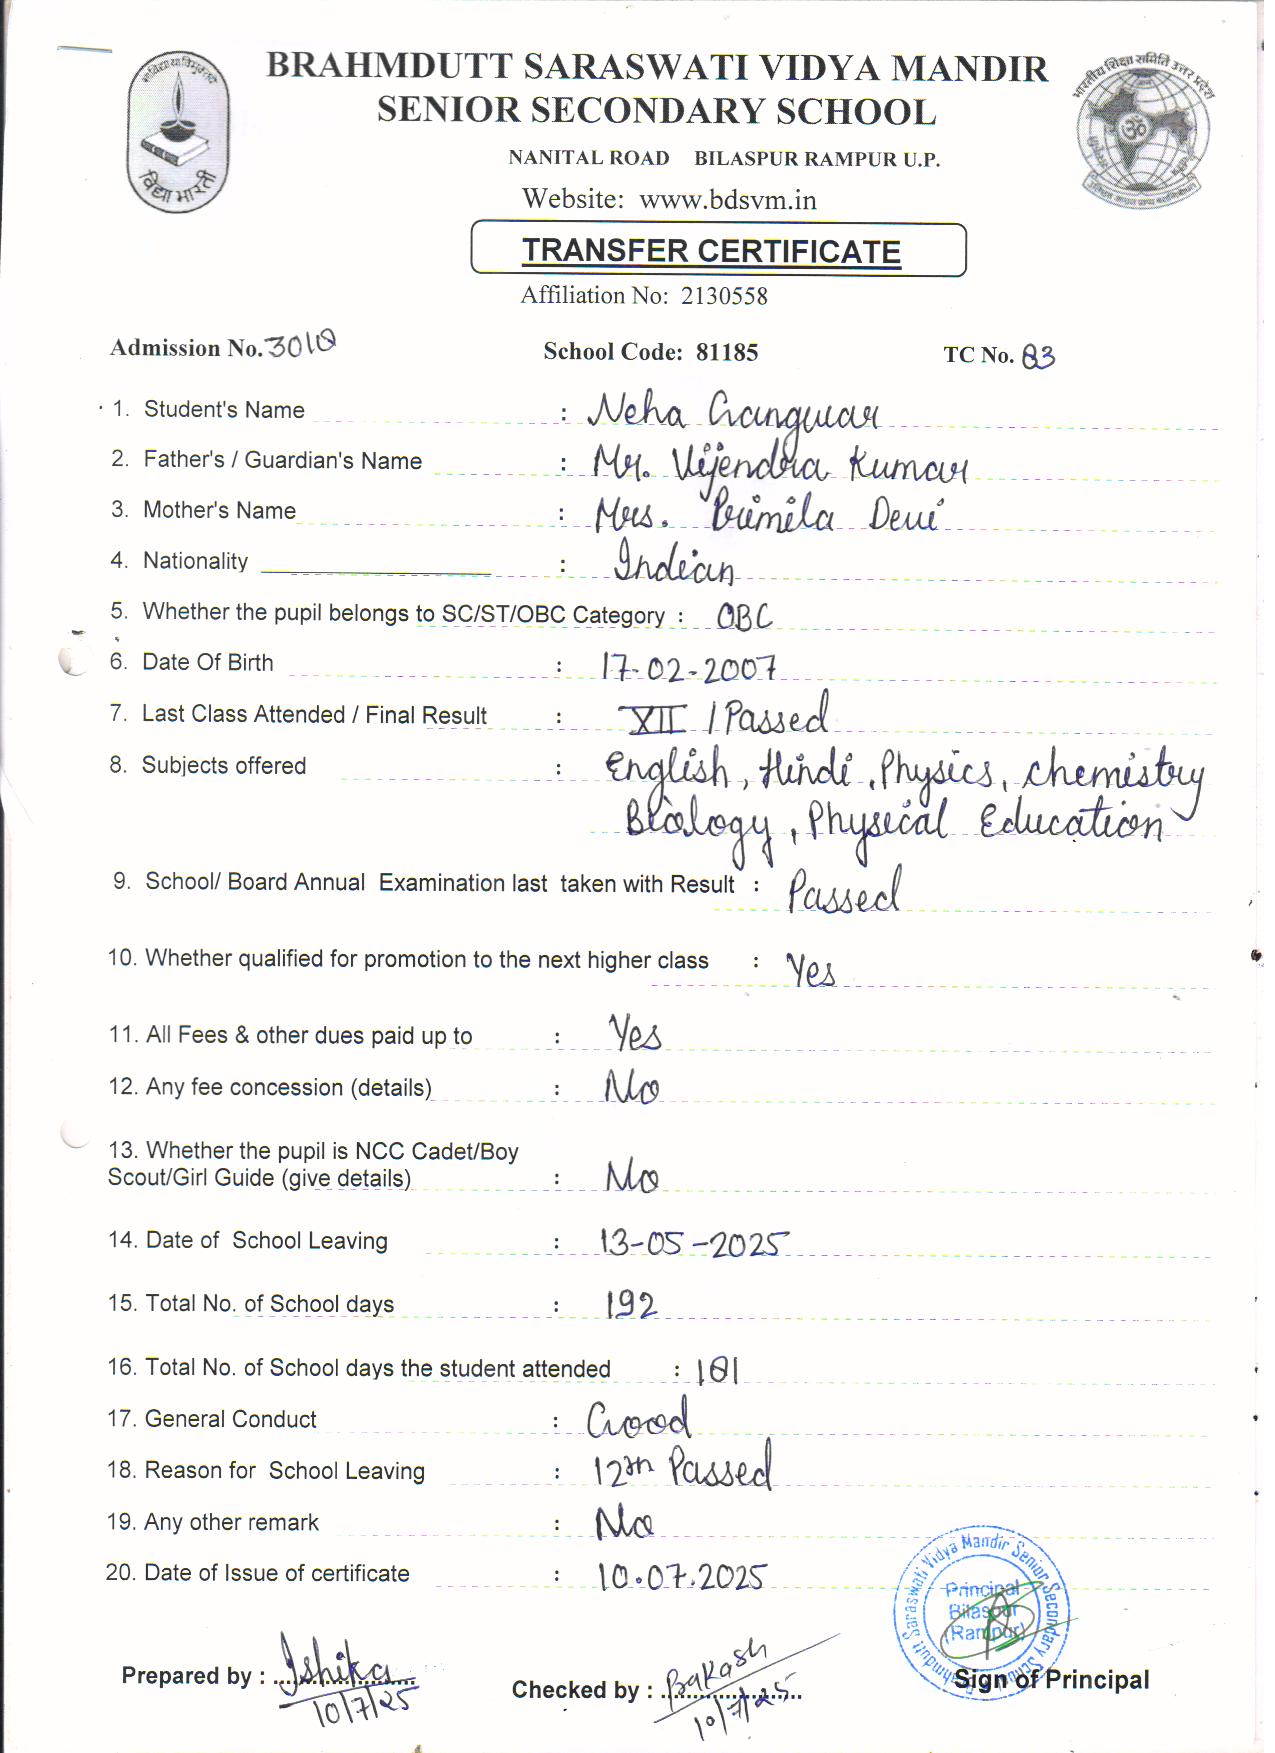 BRAHMDUTT SARASWATI VIDYA MANDIR
SENIOR SECONDARY SCHOOL
NANITAL ROAD BILASPUR RAMPUR U.P.
विद्या भारती
भारतीय शिक्षा समिति उत्तर प्रदेश
Website: www.bdsvm.in
TRANSFER CERTIFICATE
Affiliation No: 2130558
Admission No. 3018 School Code: 81185 TC No. 83
1. Student's Name : Neha Gangwar
2. Father's / Guardian's Name : Mr. Vijendra Kumar
3. Mother's Name : Mrs. Primila Devi
4. Nationality : Indian
5. Whether the pupil belongs to SC/ST/OBC Category : OBC
6. Date Of Birth : 17-02-2007
7. Last Class Attended / Final Result : XII / Passed
8. Subjects offered : English, Hindi, Physics, Chemistry
Biology, Physical Education
9. School/ Board Annual Examination last taken with Result : Passed
10. Whether qualified for promotion to the next higher class : Yes
11. All Fees & other dues paid up to : Yes
12. Any fee concession (details) : No
13. Whether the pupil is NCC Cadet/Boy
Scout/Girl Guide (give details) : No
14. Date of School Leaving : 13-05-2025
15. Total No. of School days : 192
16. Total No. of School days the student attended : 181
17. General Conduct : Good
18. Reason for School Leaving : 12th Passed
19. Any other remark : No
20. Date of Issue of certificate : 10.07.2025
Brahmdutt Saraswati Vidya Mandir Senior Secondary School
Principal
Bilaspur
(Rampur)
Prepared by : Ishika Checked by : Sign of Principal
10/7/25 10/7/25